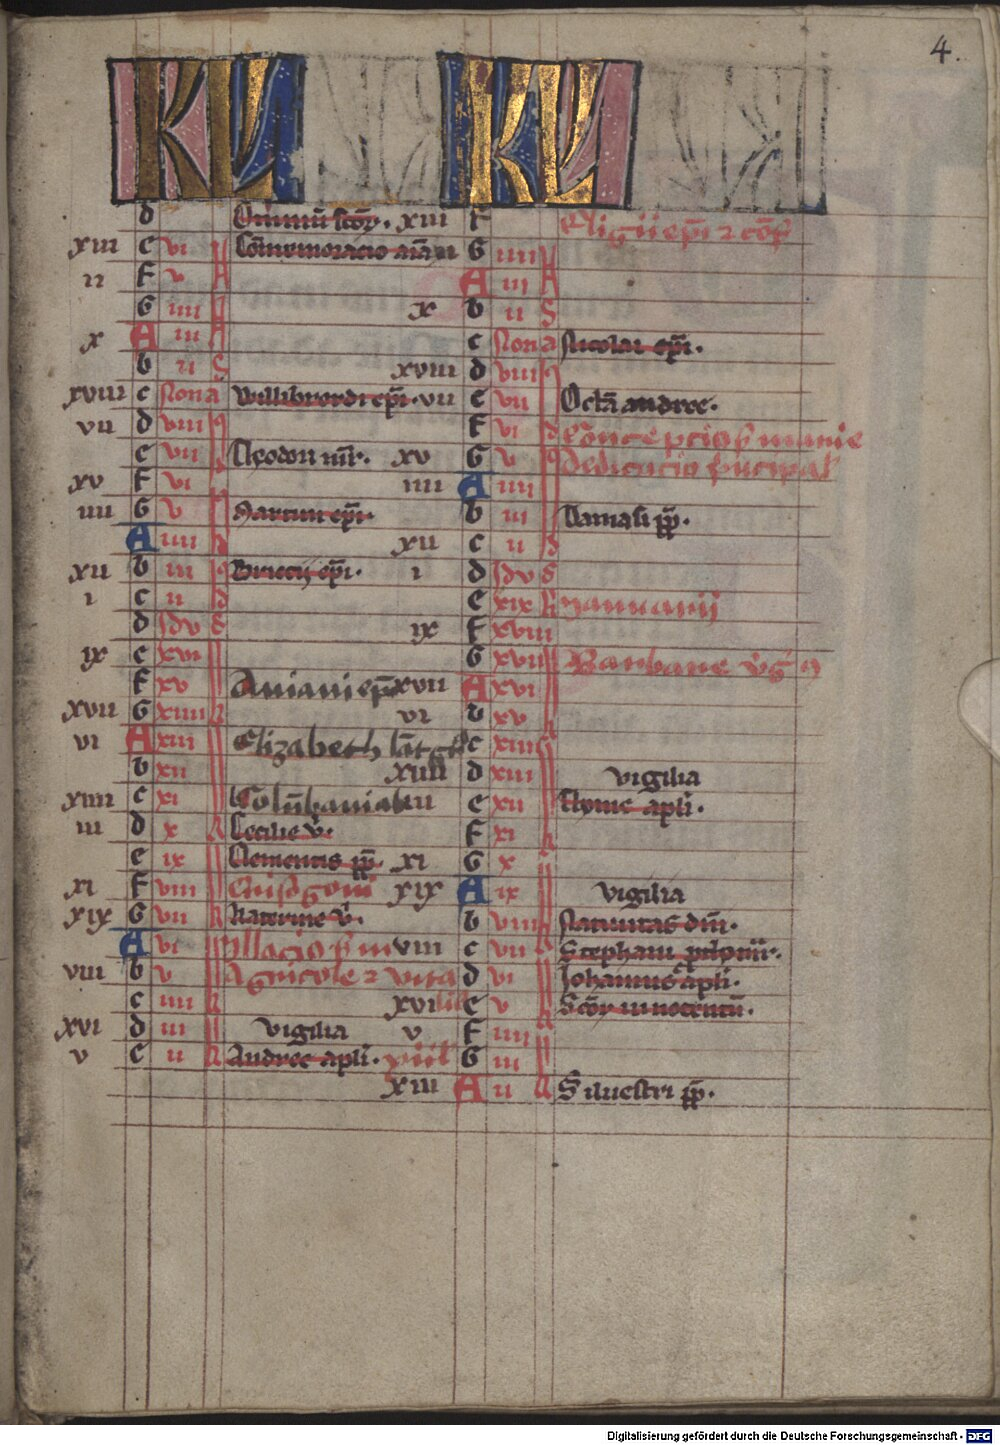 4.
KL
d Omniū sctoꝝ.
xiii e vi Cōmemoracio aīaꝝ
ii f v
G iiii
x A iii
b ii
xviii c Nona Willibrordi ep̄i.
vii d viii
e vii Theodori mr̄.
xv f vi
iiii G v Martini ep̄i.
A iiii
xii b iii Briccij ep̄i.
i c ii
d Idus
ix e xvi
f xv Aniani ep̄
xvii G xiiii
vi A xiii Elizabeth
b xii
xiiii c xi Colūbani ab
iii d x Cecilie v̄.
e ix Clementis pp̄.
xi f viii Crisogoni
xix G vii Katerine v̄.
A vi
viii b v Agricole ⁊ vita
c iiii
xvi d iii vigilia
v e ii Andree apl̄i.
KL
xiii f Eligii ep̄i ⁊ cōf
G iiii
A iii
x b ii
c Nona Nicolai ep̄i.
xviii d viii
vii e vii Octā andree.
f vi Concepcio marie
xv G v Dedicacio
iiii A iiii
b iii Damasi pp̄.
xii c ii
i d Idus
e xix Januarij
ix f xviii
G xvii Barbare
xvii A xvi
vi b xv
c xiiii
xiiii d xiii vigilia
iii e xii Thome apl̄i.
f xi
xi G x
xix A ix vigilia
b viii Natiuitas dn̄i.
viii c vii Stephani
d vi Johannis apl̄i.
xvi e v Sctoꝝ innocentū.
v f iiii
G iii
xiii A ii Siluestri pp̄.
Digitalisierung gefördert durch die Deutsche Forschungsgemeinschaft - DFG